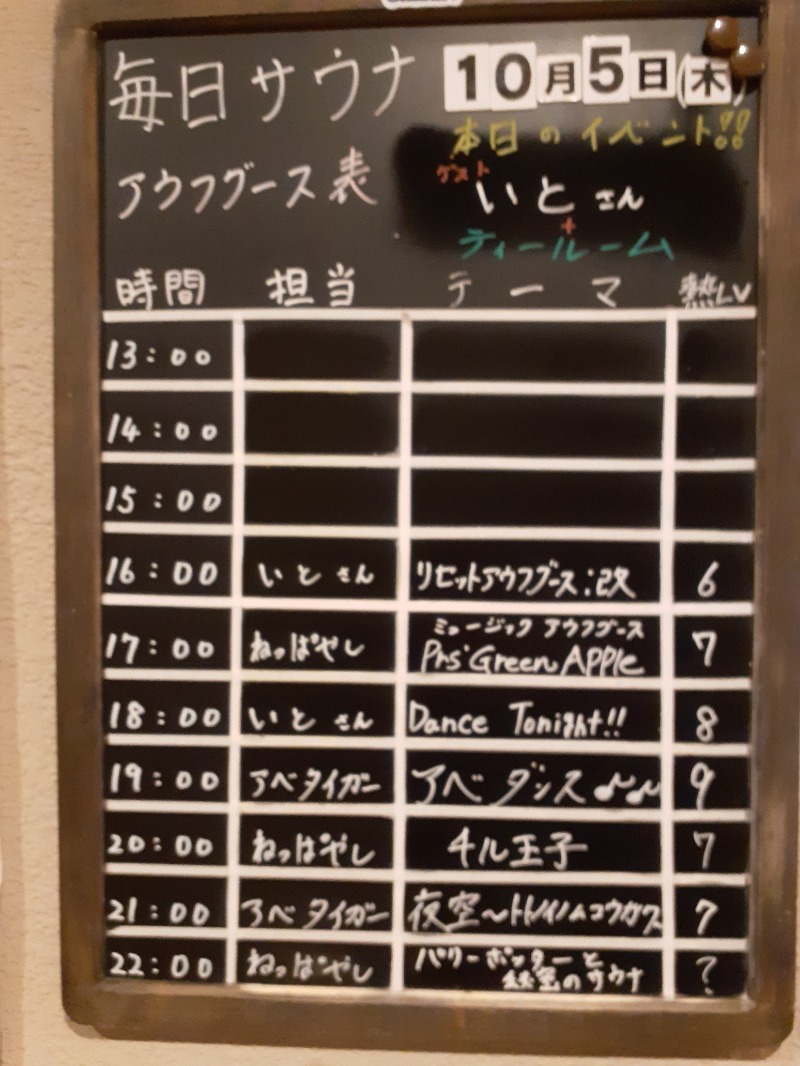 毎日サウナ
10月5日(木)
本日のイベント!!
アウフグース表
ゲスト
いとさん
+
ティールーム
時間 担当 テーマ 熱LV
13:00
14:00
15:00
16:00 いとさん リセットアウフグース:改 6
17:00 ねっぱやし ミュージックアウフグース 7
Mrs'Green APPle
18:00 いとさん Dance Tonight!! 8
19:00 アベタイガー アベダンス♪♪ 9
20:00 ねっぱやし チル玉子 7
21:00 アベタイガー 夜空〜 7
22:00 ねっぱやし ハリーポッターと ?
のサウナ